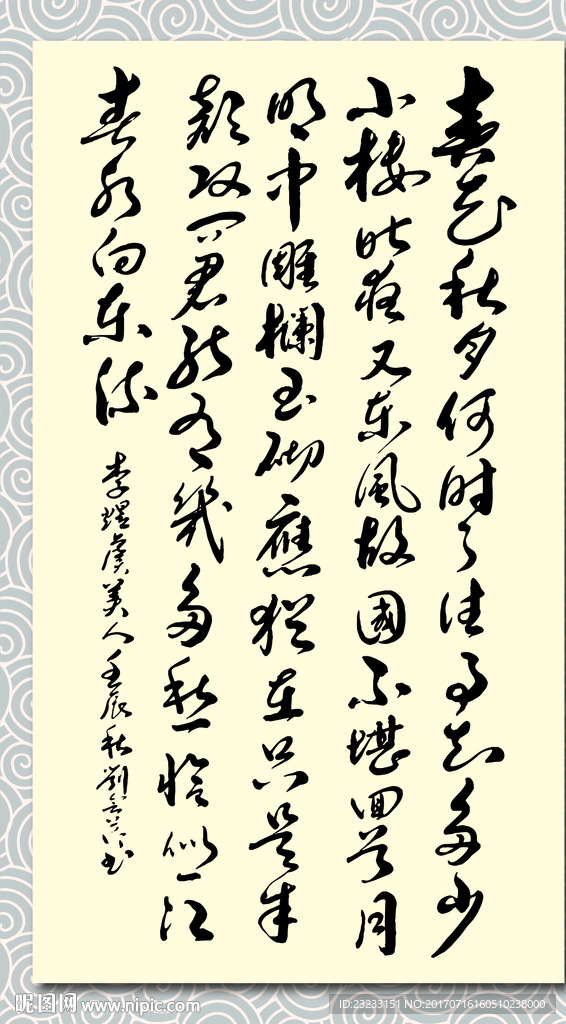 春花秋月何时了往事知多少
小楼昨夜又东風故國不堪回首月
明中雕欄玉砌應猶在只是朱
颜改问君能有幾多愁恰似一江
春水向东流
李煜虞美人壬辰秋劉书
昵图网 www.nipic.com
ID:23233151 NO:20170716160510238000